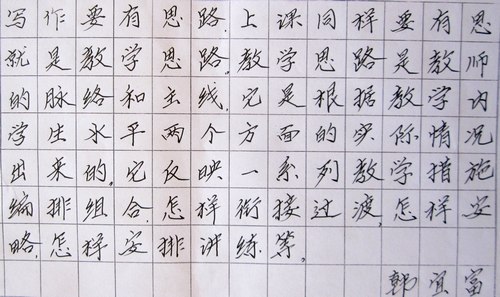 写作要有思路,上课同样要有思
就是教学思路,教学思路是教师
的脉络和主线,它是根据教学内
学生水平两个方面的实际情况
出来的,它反映一系列教学措施
编排组合,怎样衔接过渡,怎样安
略,怎样安排讲练等。
韩宜富